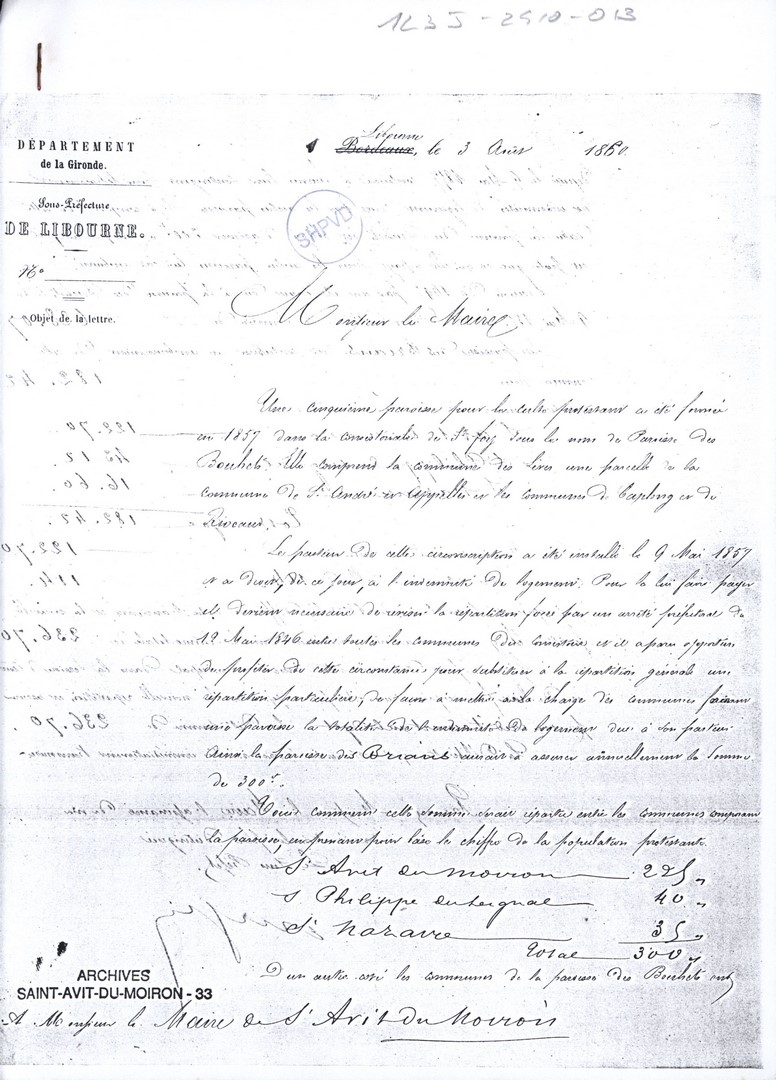 1L3J-2910-013
DÉPARTEMENT
de la Gironde.
Sous-Préfecture
DE LIBOURNE.
N°
Objet de la lettre.
Libourne
Bordeaux, le 3 Août 1860.
SHPVD
Monsieur le Maire,
Une cinquième paroisse pour le culte protestant a été formée
en 1857 dans la consistoriale de Ste Foy sous le nom de Paroisse des
Bouhets. Elle comprend la commune des Lèves une parcelle de la
commune de St André et Appelles et les communes de Caplong et de
Riocaud.
Le pasteur de cette circonscription a été installé le 9 Mai 1857
et a droit, dès ce jour, à l'indemnité de logement. Pour la lui faire payer
il devient nécessaire de réviser la répartition fixée par un arrêté préfectoral du
12 Mai 1846 entre toutes les communes du consistoire et il a paru opportun
de profiter de cette circonstance pour substituer à la répartition générale une
répartition particulière, de façon à mettre à la charge des communes formant
une paroisse la totalité de l'indemnité de logement due à son pasteur
Ainsi la paroisse des Briands aurait à assurer annuellement la somme
de 300f.
Voici comment cette somme serait répartie entre les communes composant
la paroisse, en prenant pour base le chiffre de la population protestante.
St Avit du moiron 225 "
St Philippe du seignal 40 "
St Nazaire 35 "
Total 300 "
D'un autre côté les communes de la paroisse des Bouhets ont
ARCHIVES
SAINT-AVIT-DU-MOIRON - 33
A Monsieur le Maire de St Avit du Moiron